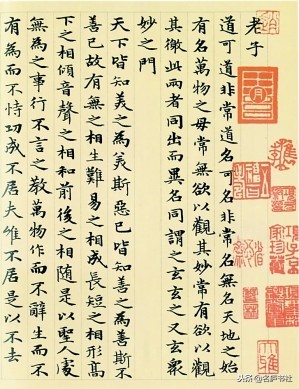 老子
道可道非常道名可名非常名無名天地之始
有名萬物之母常無欲以觀其妙常有欲以觀
其徼此兩者同出而異名同謂之玄玄之又玄衆
妙之門
天下皆知美之為美斯惡已皆知善之為善斯不
善已故有無之相生難易之相成長短之相形高
下之相傾音聲之相和前後之相随是以聖人處
無為之事行不言之教萬物作而不辭生而不
有為而不恃功成不居夫唯不居是以不去
@名庐书社